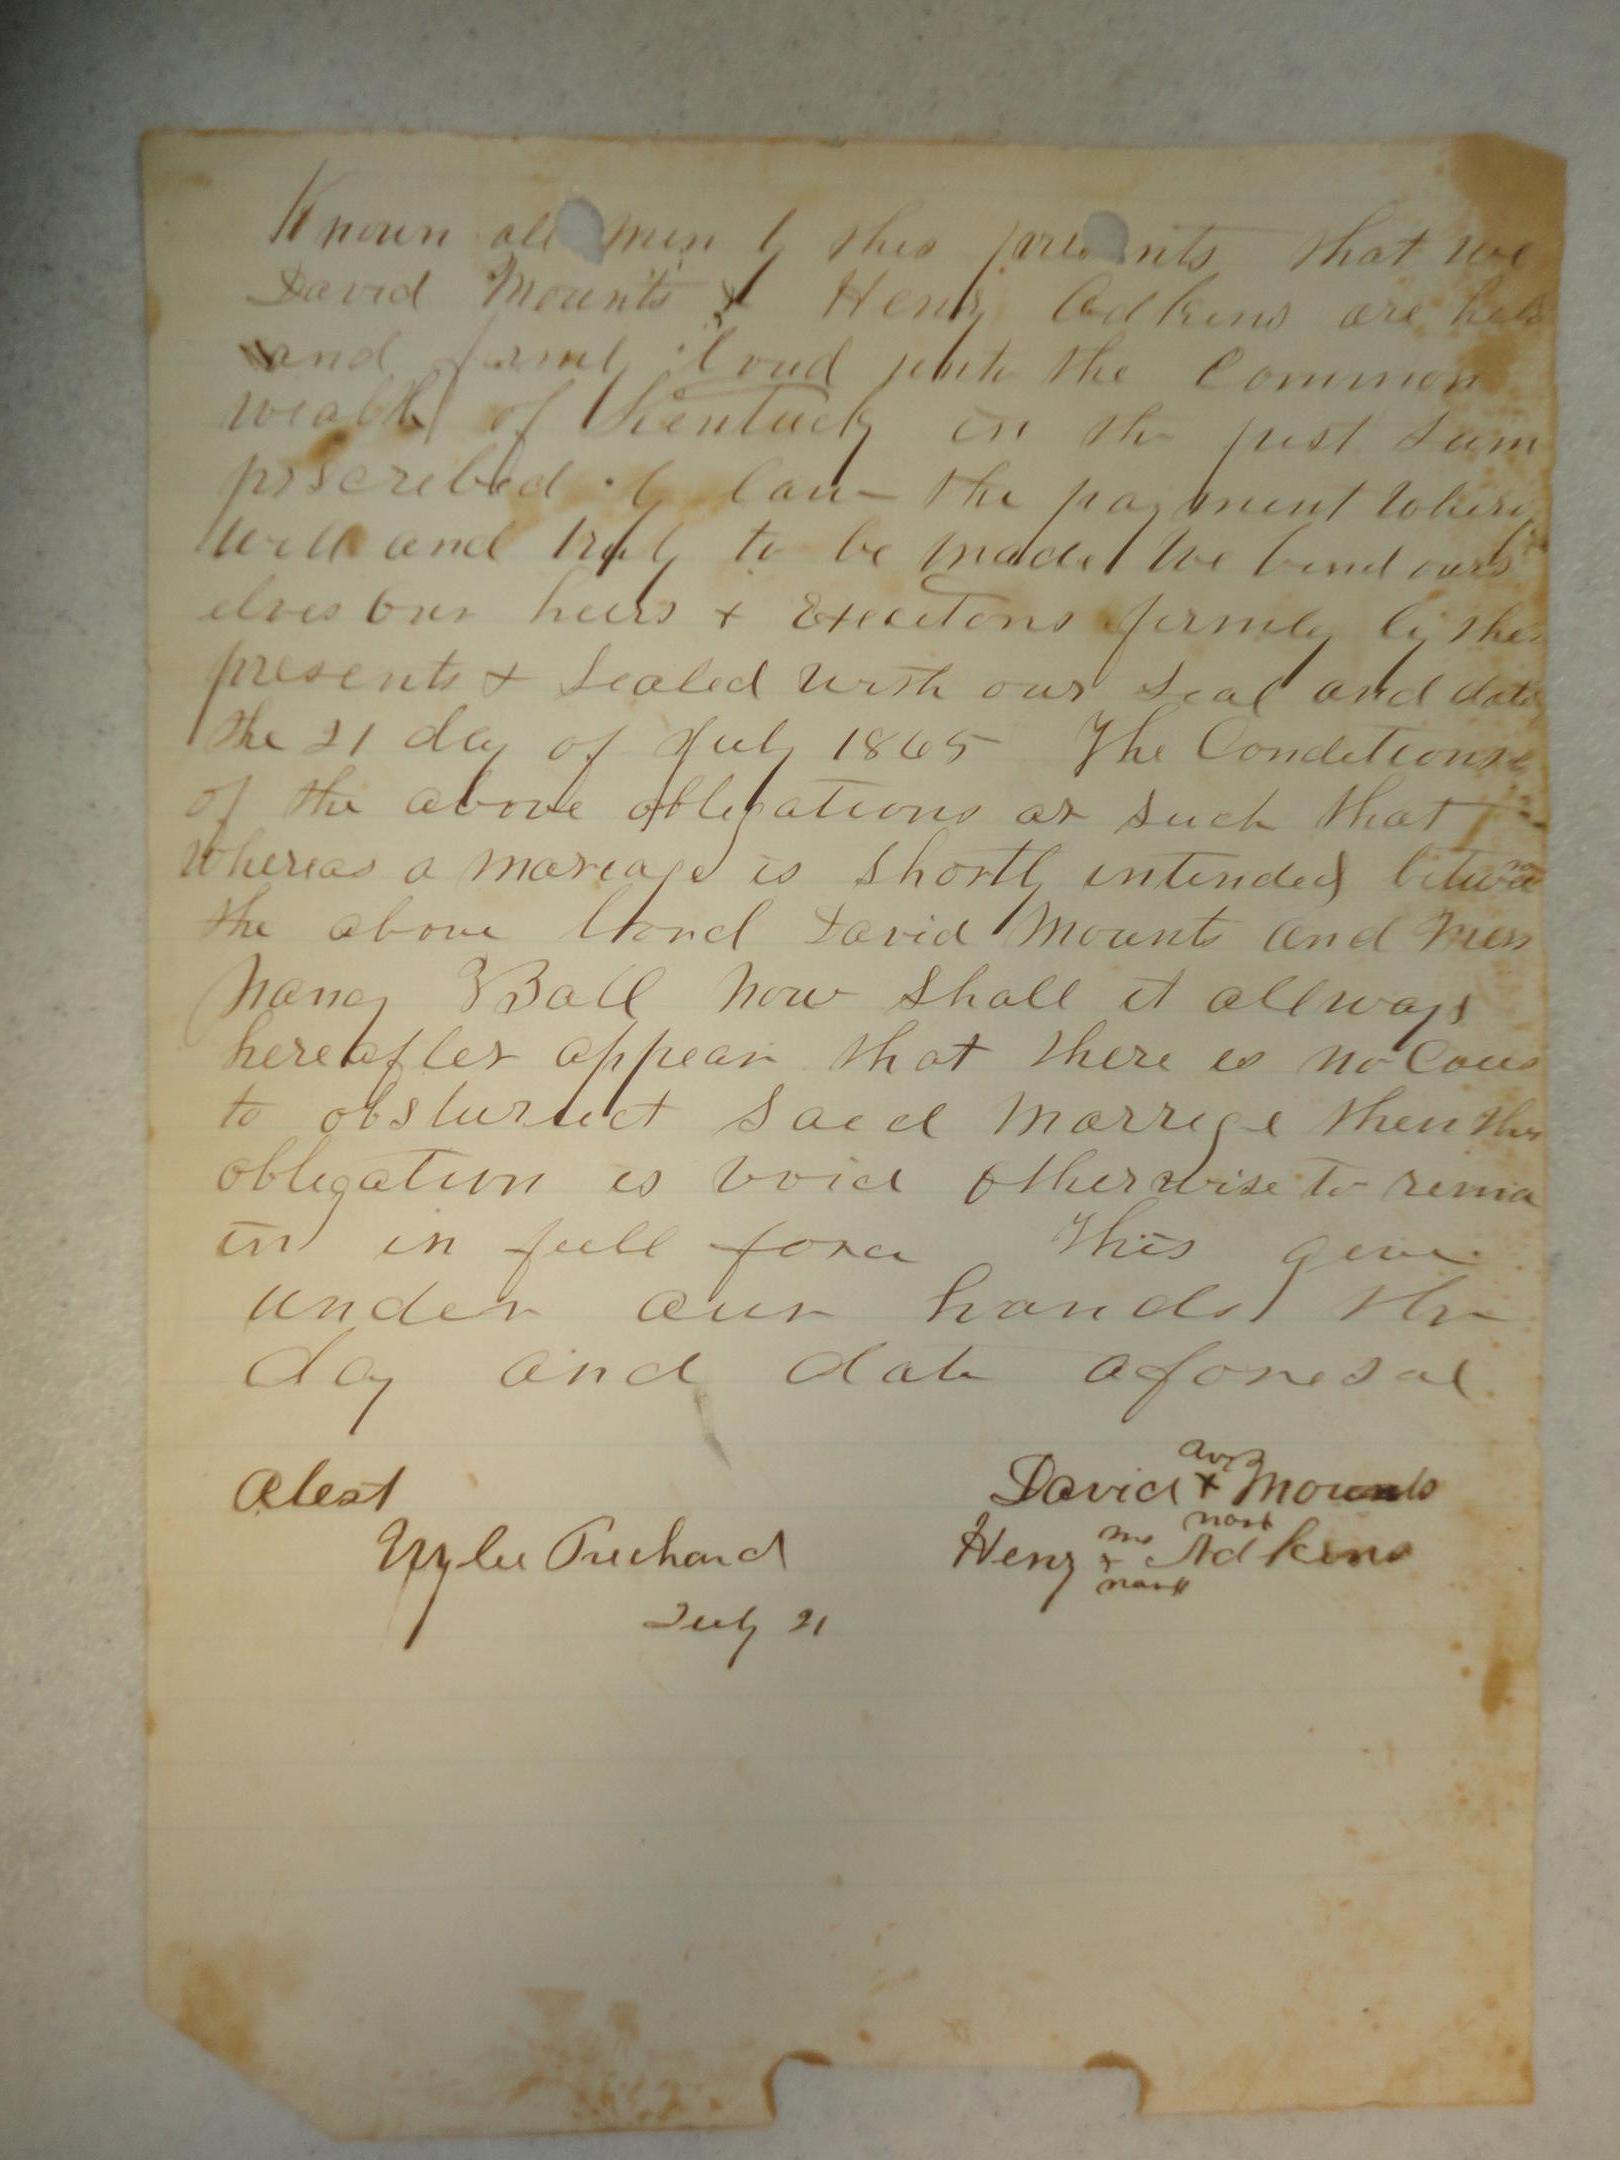 Known all men by this presents that we
David Mounts & Henry Adkins are held
and firmly boud unto the Common
wealth of Kentucky in the just sum
prscribed by law the payment where
well and truly to be made We bind ours
elves our heirs + Executons firmly by thes
presents + sealed with our seal and date
the 21 day of July 1865 The Conditions
of the above obligations ar such that
whereas a mareage is shortly intended
the above bond David Mounts and Miss
Nancy Ball Now shall it allways
hereafter appear that there is no Caus
to obsturuct said marrege then this
obligation is void otherwise to rema
in in full force This give
under our hands the
day and date aforesad
Atest David + Mounts
mark
Wylie Prichard Henry + Adkins
mark
July 21